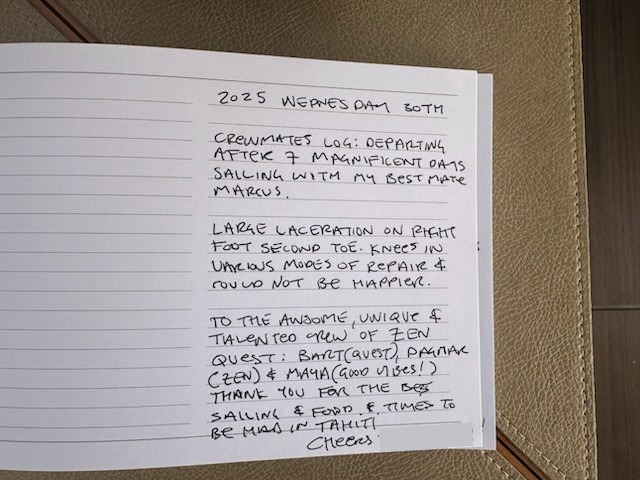 2025 WEDNESDAY 30TH
CREWMATES LOG: DEPARTING
AFTER 7 MAGNIFICENT DAYS
SAILING WITH MY BEST MATE
MARCUS.
LARGE LACERATION ON RIGHT
FOOT SECOND TOE. KNEES IN
VARIOUS MODES OF REPAIR &
COULD NOT BE HAPPIER.
TO THE AWSOME, UNIQUE &
TALENTED CREW OF ZEN
QUEST: BART (QUEST), DAGMAR
(ZEN) & MAYA (GOOD VIBES!)
THANK YOU FOR THE BEST
SAILING & FOOD & TIMES TO
BE HAD IN TAHITI
CHEERS